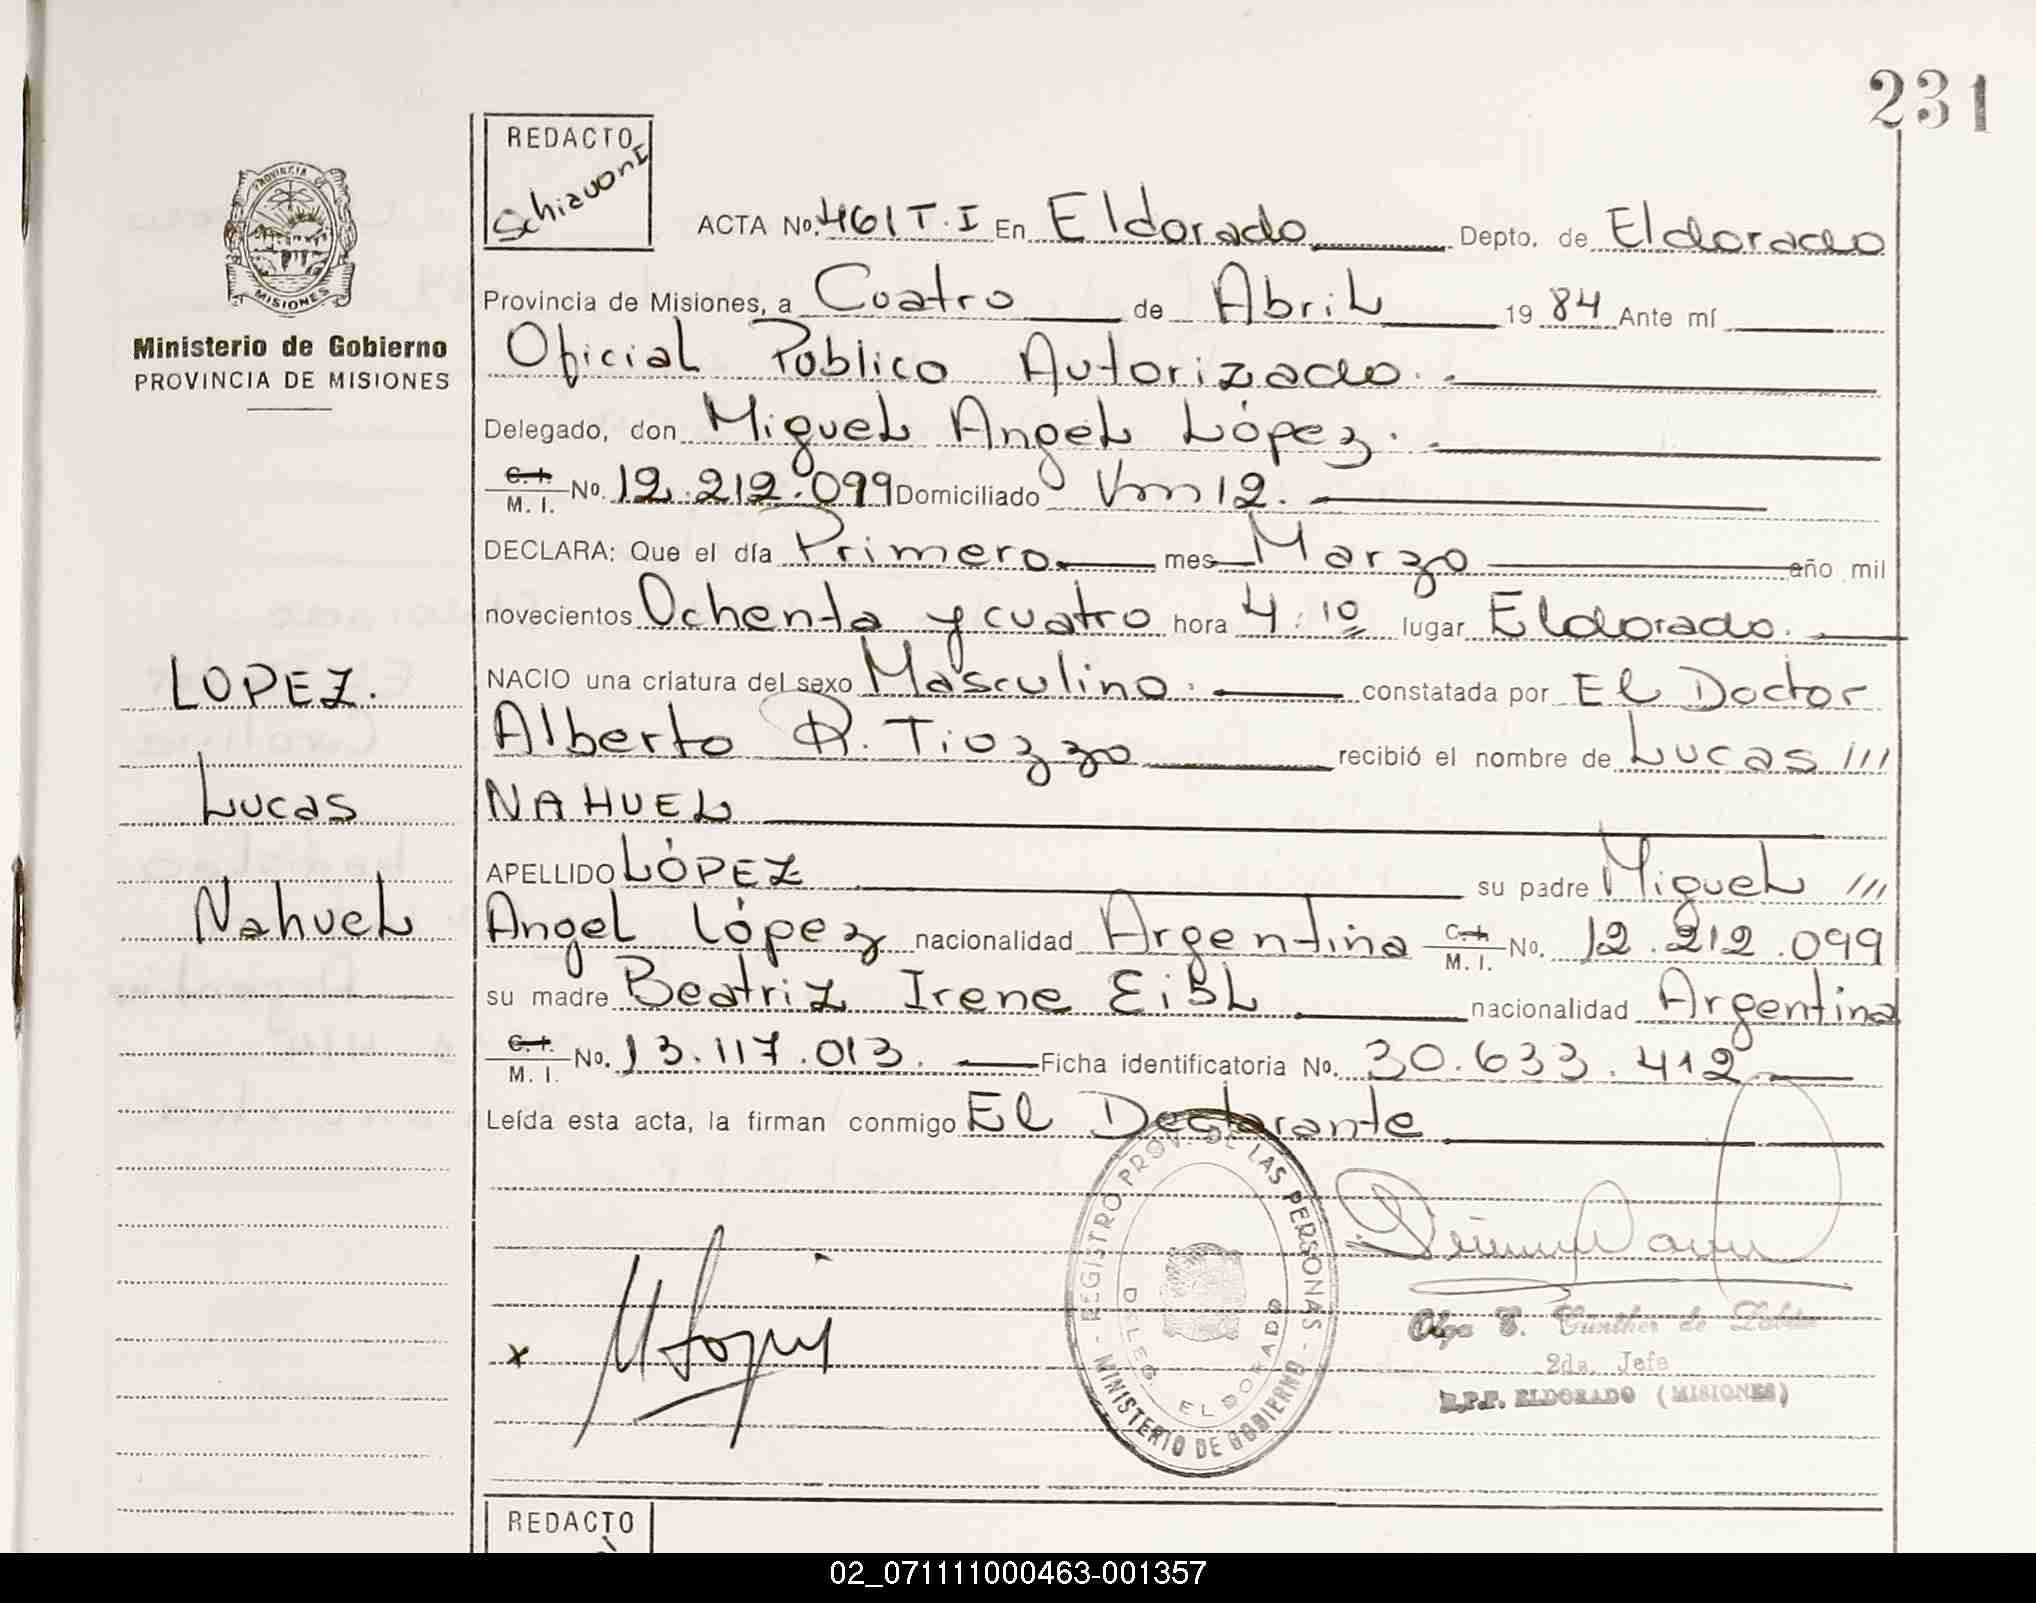 231
REDACTO
Schiavoni
PROVINCIA
MISIONES
Ministerio de Gobierno
PROVINCIA DE MISIONES
ACTA No. 461 T. I En Eldorado Depto. de Eldorado
Provincia de Misiones, a Cuatro de Abril 19 84 Ante mí
Oficial Público Autorizado.
Delegado, don Miguel Angel López.
C. I. M. I. No. 12.212.099 Domiciliado Km 12.
DECLARA: Que el día Primero mes Marzo año mil
novecientos Ochenta y cuatro hora 4:10 lugar Eldorado.
NACIO una criatura del sexo Masculino. constatada por El Doctor
Alberto R. Tiozzo recibió el nombre de Lucas ///
NAHUEL
APELLIDO LÓPEZ su padre Miguel ///
Angel López nacionalidad Argentina C. I. M. I. No. 12.212.099
su madre Beatriz Irene Eibl nacionalidad Argentina
C. I. M. I. No. 13.117.013. Ficha identificatoria No. 30.633.412
Leída esta acta, la firman conmigo El Declarante
LOPEZ.
Lucas
Nahuel
x
REGISTRO PROV. DE LAS PERSONAS
DELEG. ELDORADO
- MINISTERIO DE GOBIERNO -
Olga T. Gunther de
2da. Jefe
R.P.P. ELDORADO (MISIONES)
REDACTO
02_071111000463-001357